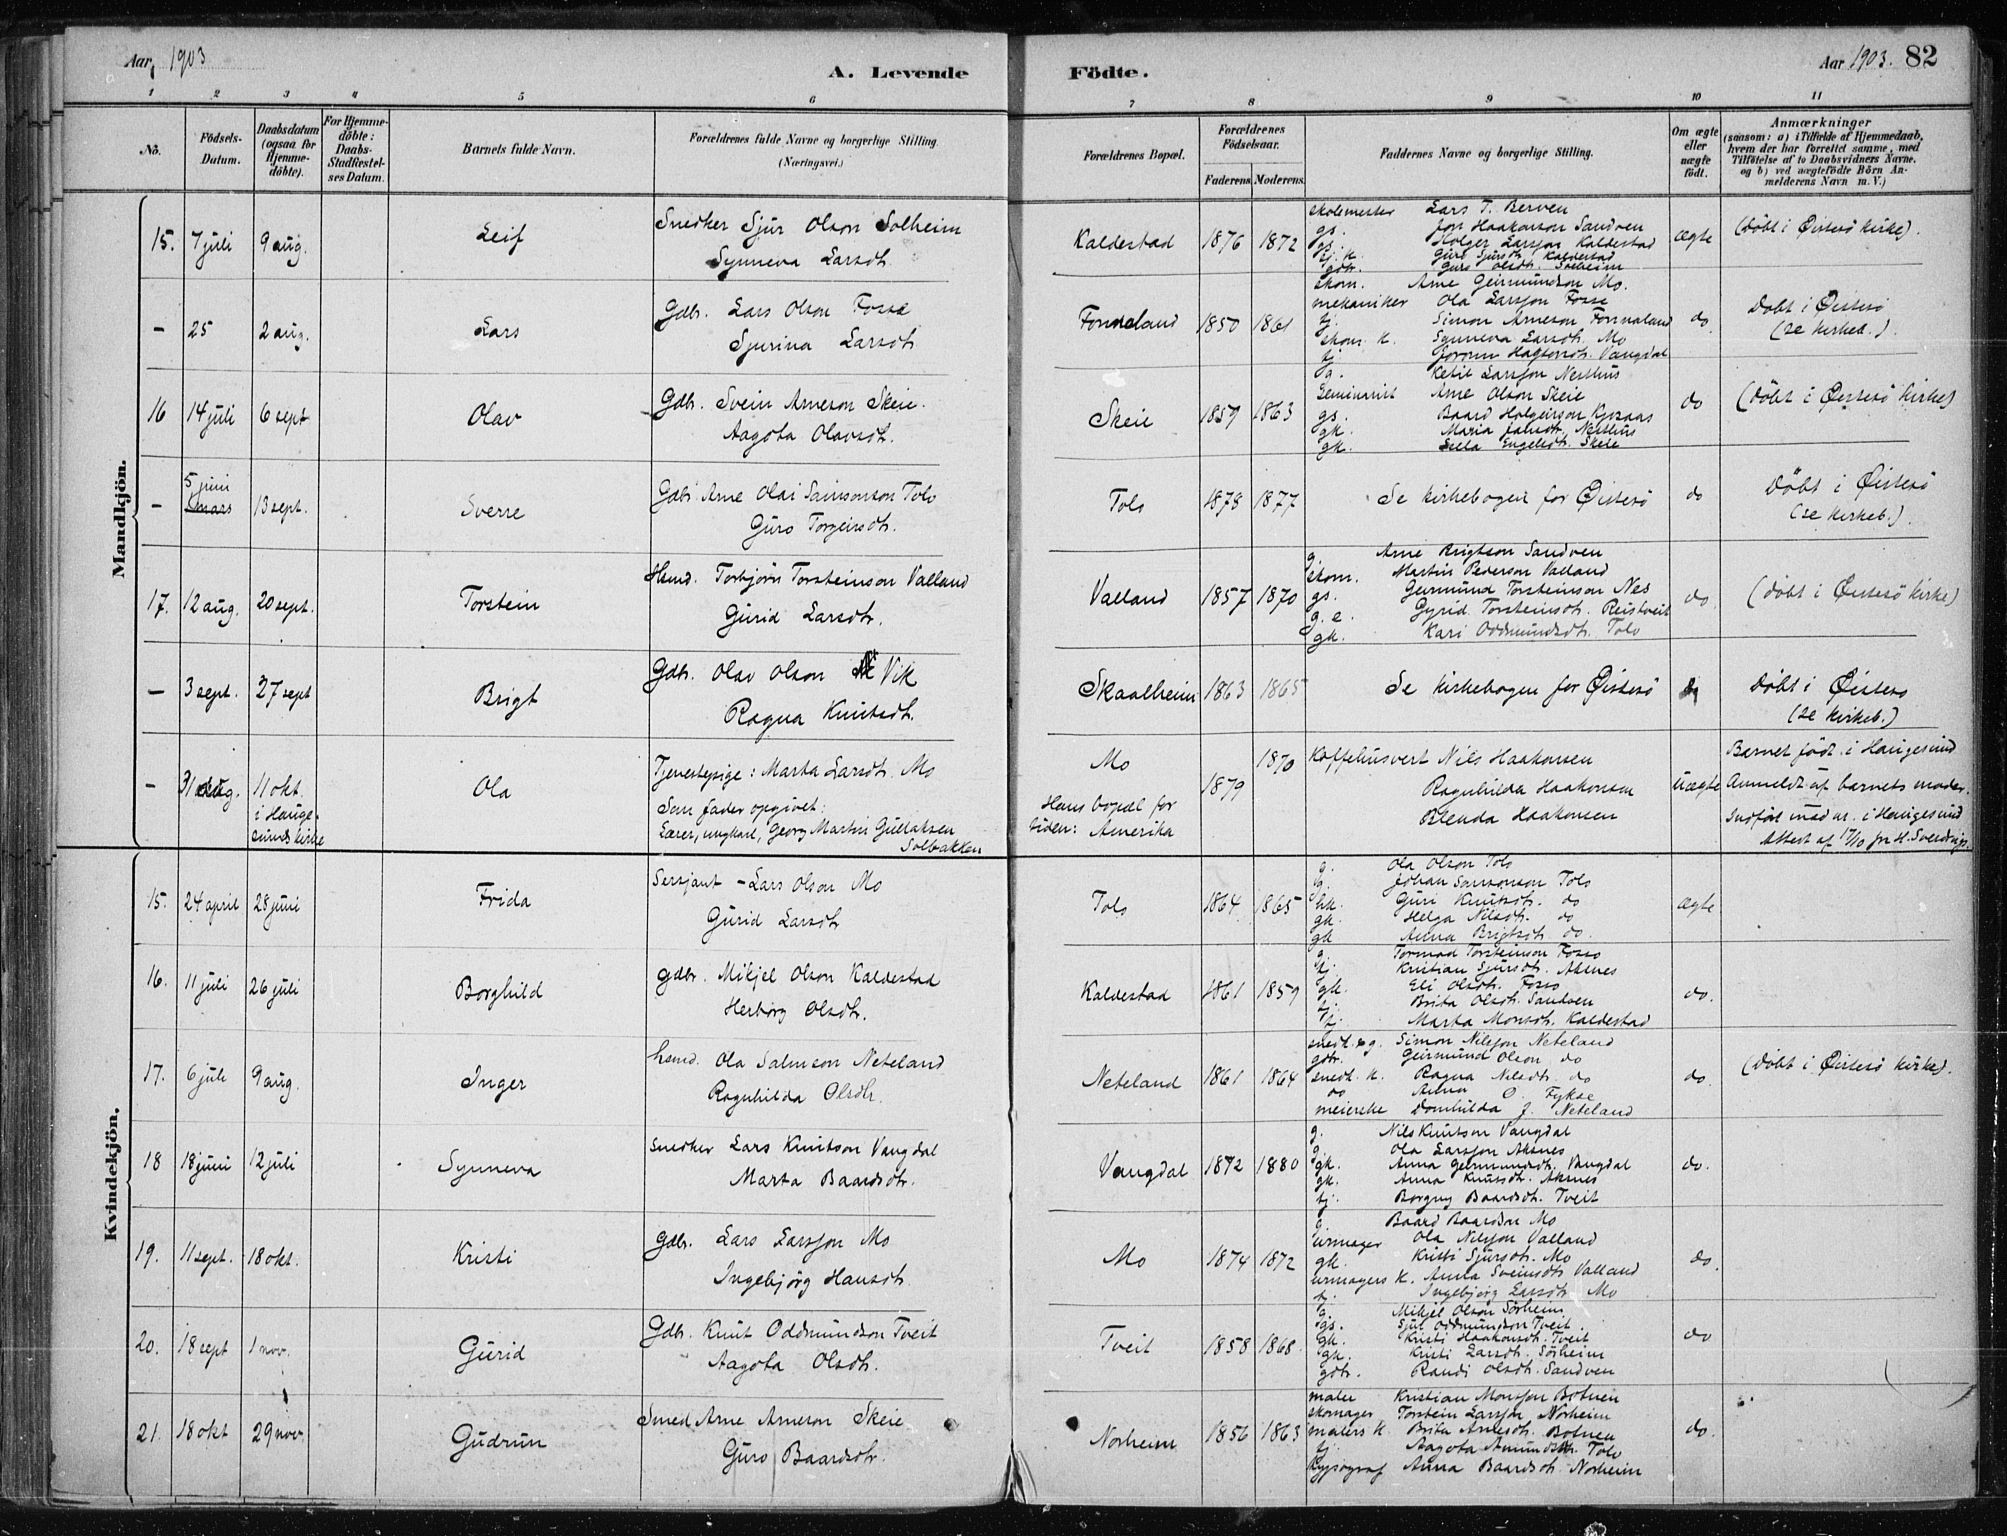 Aar 1903
A. Levende
Födte.
Aar 1903. 82
1 2 3 4 5 6 7 8 9 10 11
No.
Födsels-Datum.
Daabsdatum (ogsaa for Hjemme-döbte).
For Hjemme-döbte: Daabs-Stadfæstel-ses Datum.
Barnets fulde Navn.
Forældrenes fulde Navne og borgerlige Stilling. (Næringsvei.)
Forældrenes Bopæl.
Forældrenes Födselsaar.
Faderens. Moderens.
Faddernes Navne og borgerlige Stilling.
Om ægte eller uægte födt.
Anmærkninger
(saasom: a) i Tilfælde af Hjemmedaab, hvem der har forrettet samme, med Tilföielse af to Daabsvidners Navne. og b) ved uægtefödte Börn An-melderens Navn m. V.)
Mandkjön.
15. 7 juli 9 aug. Leif
Snedker Sjur Olson Solheim
Synneva Larsdtr.
Kaldestad 1876 1872
skolemester Lars T. Berven
gs. Jon Haakonson Sandven
gs. Holger Larsson Kaldestad
tj. k. Guro Sjursdtr. Kaldestad
gdtr. Guro Olsdtr. Solheim
ægte (döbt i Östesö kirke).
- 25 2 aug. Lars
Gdbr. Lars Olson Fosse
Sjurina Larsdtr
Fonneland 1850 1861
skom. Arne Geirmundson Mo.
mekaniker Ola Larsson Fosse
tj. Simon Arneson Fonnaland
skom. k. Synneva Larsdtr. Mo
tj. Vangdal
do Döbt i Östesö
(se kirkeb.).
16 14 juli 6 sept Olav
Gdbr. Svein Arneson Skeie.
Aagota Olavsdtr.
Skeie 1859 1863
g. Ketil Larsson Nesthus
Seminarist Arne Olson Skeie
gs. Baard Holgeirson
gk. Maria Nesthus
gk. Skeie
do (döbt i Östesö kirke)
- 5 juni mars 13 sept. Sverre
Gdbr Arne Olai Samsonson Tolo
Guro Torgeirsdtr.
Tolo 1878 1877
Se kirkebogen for Östesö
do Döbt i Östesö
(se kirkeb.).
17. 12 aug. 20 sept. Torstein
Hsmd. Torbjörn Torsteinson Valland
Gurid Larsdtr.
Valland 1857 1870
g. Arne Brigtson Sandven
skom. Martin Pederson Valland
gs. Geirmund Torsteinson Nes
g. e. Gyrid Torsteinsdtr. Reistveit
gk. Kari Oddmundsdtr. Tolo
do. (döbt i Östesö kirke)
- 3 sept. 27 sept Brigt
Gdbr. Olav Olson Vik
Ragna Knutsdtr.
Skaalheim 1863 1865
Se kirkebogen for Östesö
do Döbt i Östesö
(se kirkeb.)
- 31 aug. 11 okt. i Hauge-sunds kirke Ola
Tjenestepige: Marta Larsdtr. Mo
Som fader opgivet:
Lærer, ungkarl, Georg Martin Gullaksen
Solbakken
Mo
Hans bopæl for
tiden: Amerika
1879 1870
Kaffehusvert Nils Haakonsen
Ragnhilda Haakonsen
Blenda Haakonsen
uægte
Barnet födt i Haugesund
Anmeldt af barnets moder.
Indfört in. i Haugesund
Attest af 17/10
Kvindekjön.
15. 24 april 28 juni Frida
Sersjant - Lars Olson Mo
Gurid Larsdtr
Tolo 1864 1865
g. Ola Olson Tolo
g. Johan Samsonson Tolo
hk. Guri Knutsdtr. do
gk. Helga Nilsdtr. do
gk Anna Brigtsdtr do.
ægte
16. 11 juli 26 juli Borghild
gdbr. Mikjel Olson Kaldestad
Herborg Olsdtr.
Kaldestad 1861 1859
g. Tormod Torsteinson Fosse
tj. Kristian Sjursdtr. Aksnes
gk. Eli Olsdtr. Fosse
tj. Brita Olsdtr. Sandven
tj. Marta Monsdtr. Kaldestad
do.
17. 6 juli 9 aug. Inger
hsmd. Ola Salmson Neteland
Ragnhilda Olsdtr.
Neteland 1861 1864
snedk. og g. Simon Nilsson Neteland
gdbr. Geirmund Olson do
snedk. k. Ragna Nilsdtr. do
do Anna O. Fykse
meierske Domhilda J. Neteland
do. (Döbt i Östesö kirke).
18 18 juni 12 juli Synneva
snedker Lars Knutson Vangdal
Marta Baardsdtr.
Vangdal 1872 1880
g. Nils Knutson Vangdal
g. Ola Larsson Aksnes
gk. Anna Geirmundsdtr. Vangdal
gk. Anna Knutsdtr. Aksnes
tj. Borgny Baardsdtr. Tveit
do.
19. 11 sept. 18 okt. Kristi
Gdbr. Lars Larsson Mo
Ingebjörg Hansdtr
Mo 1874 1872
g. Baard Baardson Mo
urmager Ola Nilsson Valland
gk. Kristi Sjursdtr. Mo
urmagers k. Anna Sveinsdtr Valland
tj. Ingebjörg Larsdtr Mo
do.
20. 18 sept 1 nov. Gurid
Gdbr. Knut Oddmundson Tveit
Aagota Olsdtr.
Tveit 1858 1868.
g. Mikjel Olson Sörheim
gs. Sjur Oddmundson Tveit.
gk. Kristi Haakonsdtr. Tveit
gk. Kristi Larsdtr. Sörheim
gdtr. Randi Olsdtr. Sandven
do
21. 18 okt 29 nov. Gudrun
Smed Arne Arneson Skeie
Guro Baardsdtr.
Norheim 1856 1863
maler Kristian Monsson Botnen
skomager Torstein Larsson Norheim
malers k. Brita Arnesdtr. Botnen
tj. Aagota Amundsdtr. Tolo
Anna Baardsdtr. Norheim
do.